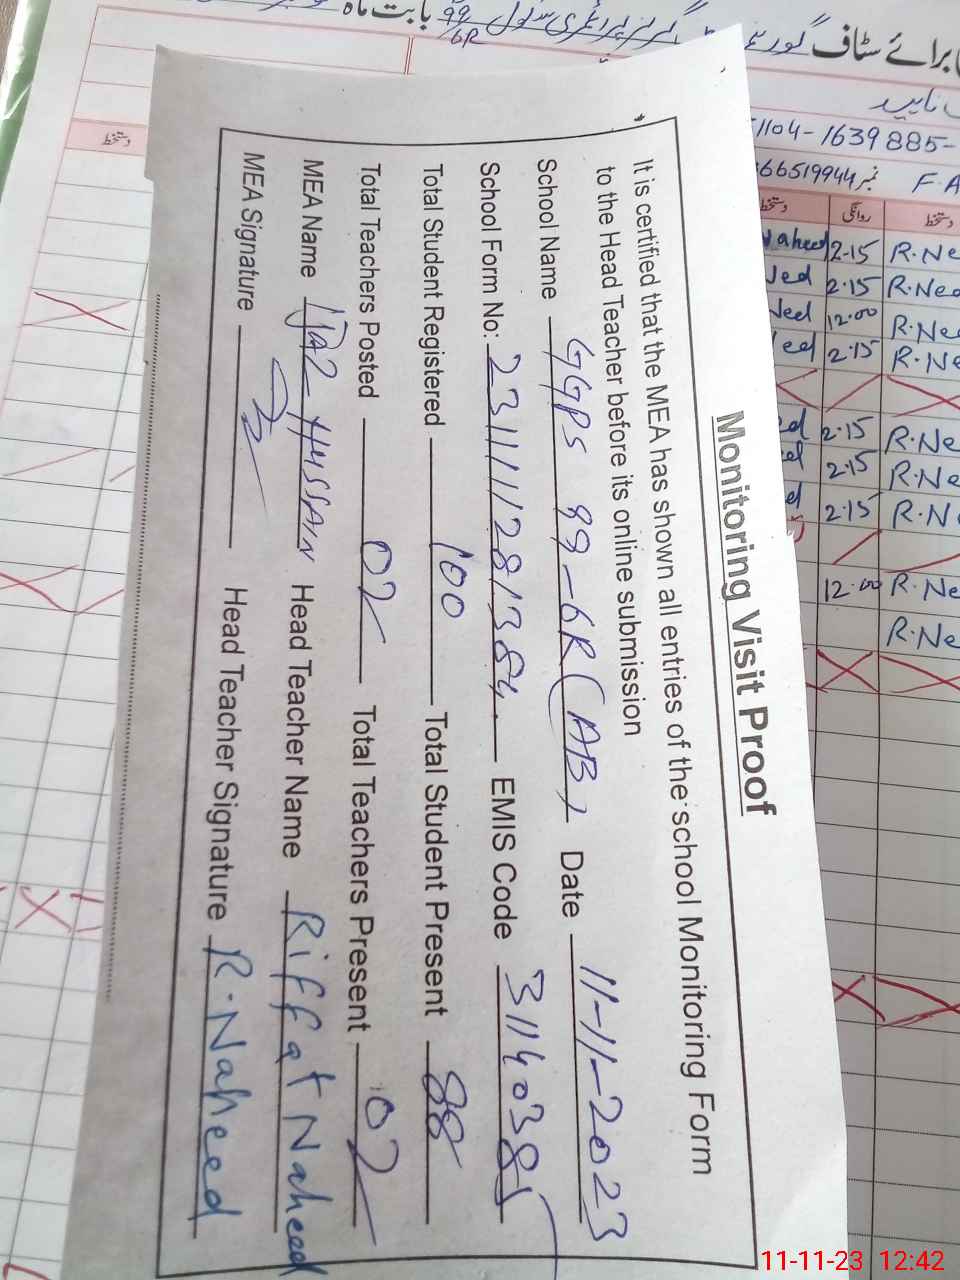 Monitoring Visit Proof
It is certified that the MEA has shown all entries of the school Monitoring Form
to the Head Teacher before its online submission
School Name GGPS 99-6R (AB) Date 11-11-2023
School Form No: 23111128/1384. EMIS Code 31140385
Total Student Registered 100 Total Student Present 88
Total Teachers Posted 02 Total Teachers Present 02
MEA Name Ijaz Hussain Head Teacher Name Riffat Naheed
MEA Signature Head Teacher Signature R.Naheed
برائے سٹاف
گرلز پرائمری سکول 99/6R بابت ماہ
1104-1639885-
66519944 نمبر F.A
دستخط روانگی دستخط
دستخط
Naheed 2-15 R.Ne
2.15 R.Nee
12.00 R.Ne
2.15 R.Ne
2.15 R.Ne
2.15 R.Ne
2.15 R.N
12.00 R.Ne
R.Ne
11-11-23 12:42